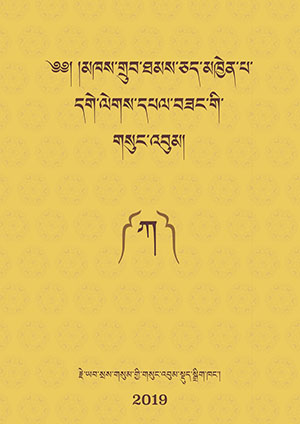 ༄༅། །མཁས་གྲུབ་ཐམས་ཅད་མཁྱེན་པ་
དགེ་ལེགས་དཔལ་བཟང་གི་
གསུང་འབུམ།
༼ཀ༽
རྗེ་ཡབ་སྲས་གསུམ་གྱི་གསུང་འབུམ་སྡུད་སྒྲིག་ཁང་།
2019